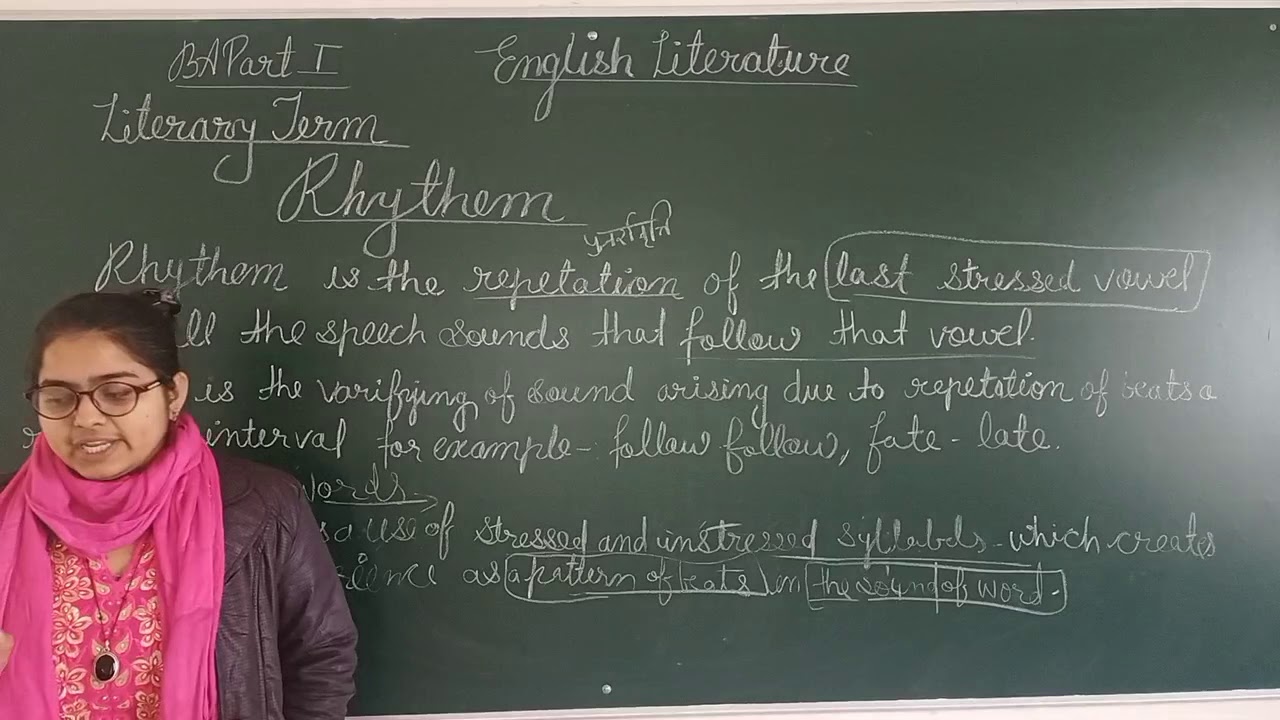 BA Part I
English Literature
Literary Term
Rhythem
पुनरावृत्ति
Rhythem is the repetation of the last stressed vowel
ll the speech sounds that follow that vowel.
is the varifying of sound arising due to repetation of beats a
interval for example - follow follow, fate - late.
words
a use of stressed and unstressed syllabels which creates
as a pattern of beats in the sound of word.